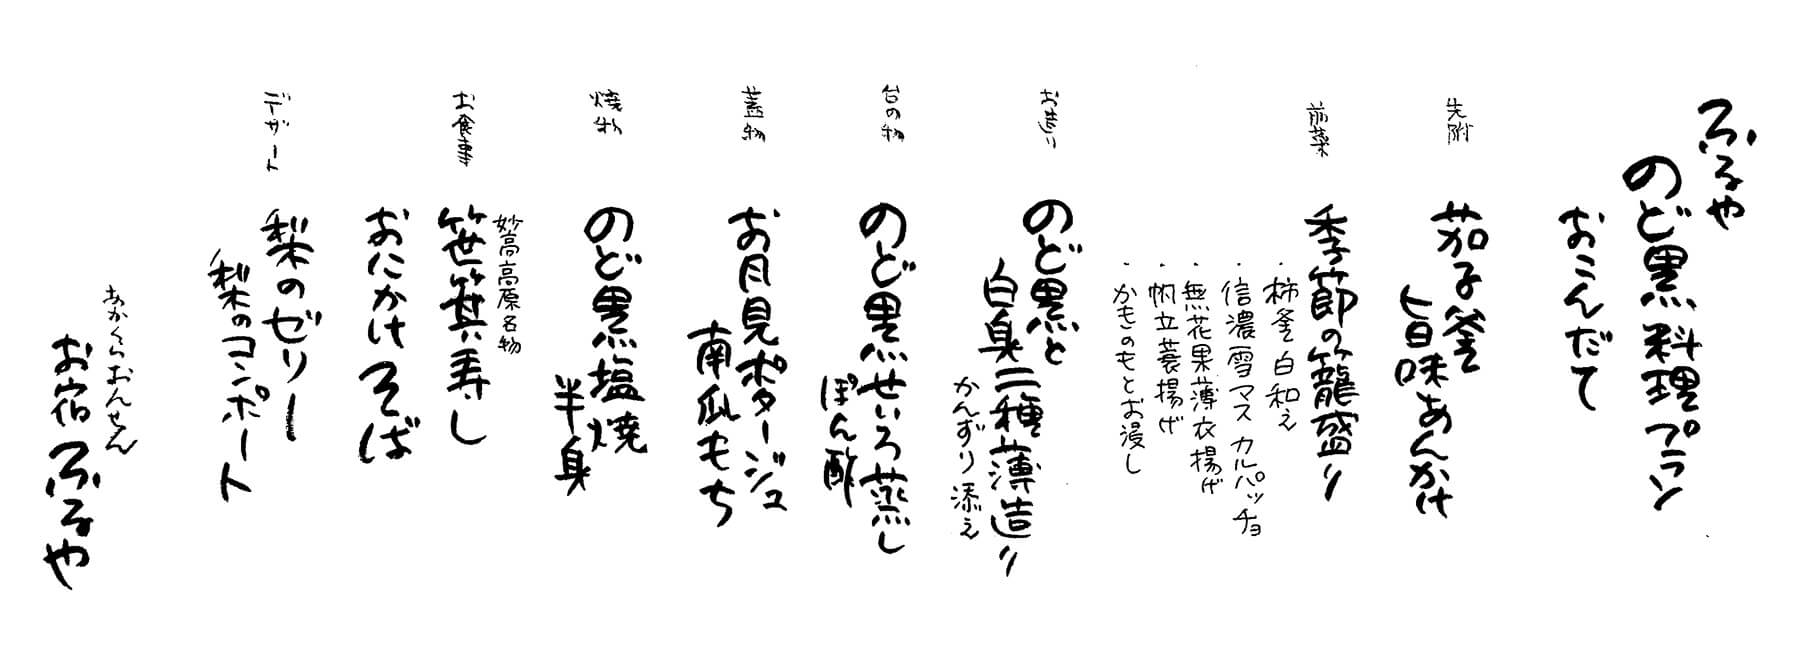 ふるや
のど黒料理プラン
おこんだて
先附
茄子釜
旨味あんかけ
前菜
季節の籠盛り
・柿釜白和え
・信濃雪マスカルパッチョ
・無花果薄衣揚げ
・帆立蓑揚げ
・かきのもとお浸し
お造り
のど黒と
白身二種薄造り
かんずり添え
台の物
のど黒せいろ蒸し
ぽん酢
蓋物
お月見ポタージュ
南瓜もち
焼物
のど黒塩焼
半身
お食事
妙高高原名物
笹箕寿し
おにかけそば
デザート
梨のゼリー
梨のコンポート
あかくらおんせん
お宿ふるや